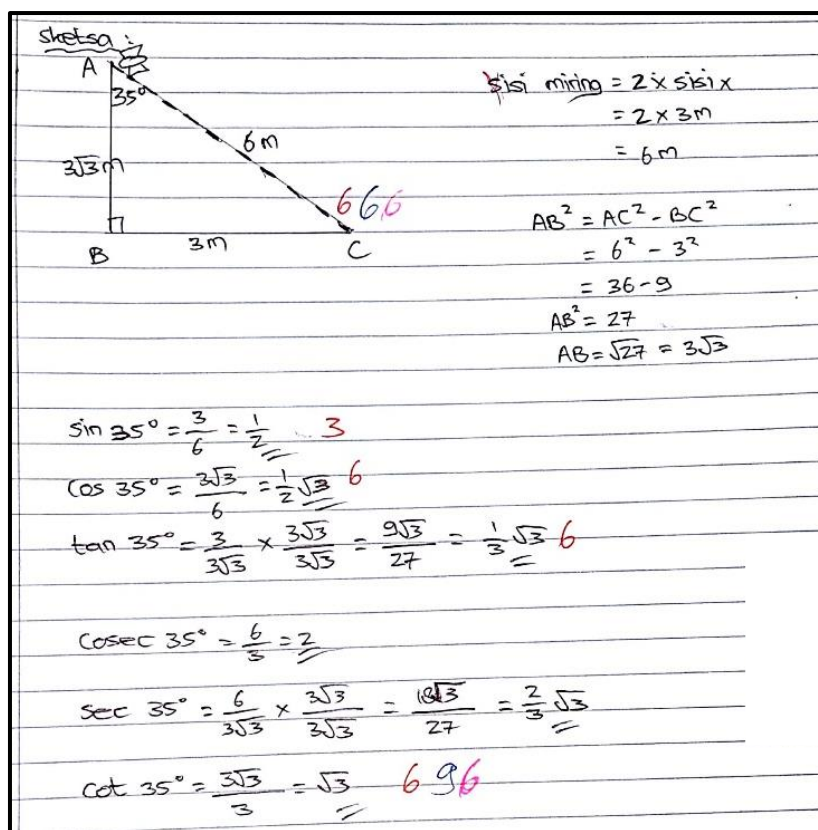 sketsa :
A
35°
3√3 m
6 m
6 6 6
B
3 m
C
sisi miring = 2 x sisi x
= 2 x 3m
= 6m
AB² = AC² - BC²
= 6² - 3²
= 36 - 9
AB² = 27
AB = √27 = 3√3
sin 35° = 3/6 = 1/2 3
cos 35° = 3√3/6 = 1/2 √3 6
tan 35° = 3/3√3 x 3√3/3√3 = 9√3/27 = 1/3 √3 6
cosec 35° = 6/3 = 2
sec 35° = 6/3√3 x 3√3/3√3 = 18√3/27 = 2/3 √3
cot 35° = 3√3/3 = √3 6 9 6